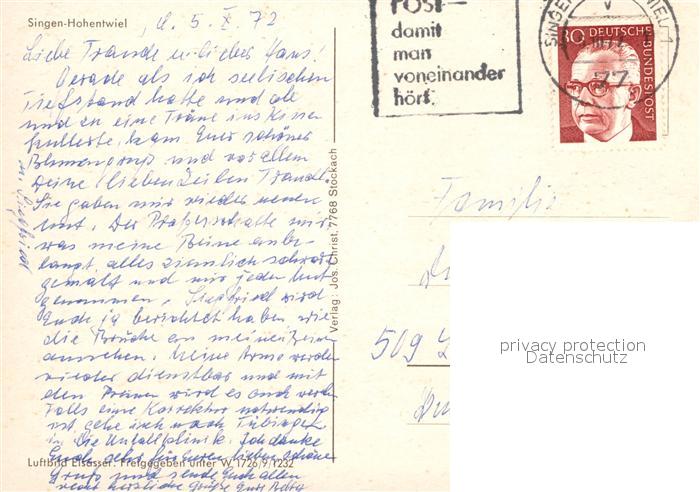 Singen-Hohentwiel
d. 5. X. 72
Liebe Traude u. lieber Hans!
Gerade als ich seelischen
Tiefstand hatte und ab
und zu eine Träne ins Kissen
kullerte, kam Euer schöner
Blumengruß und vor allem
Deine lieben Zeilen Traude.
Sie gaben mir wieder neuen
Mut. Der hatte mir
was meine Beine anbe-
langt, alles ziemlich schwarz
gemalt und mir jeden Mut
genommen. Siegfried wird
Euch ja berichtet haben wie
die Brüche an meinen Beinen
aussehen. Meine Arme werden
wieder dienstbar und mit
den wird es auch werden
Falls eine Korrektur notwendig
ist gehe ich nach Tübingen
in die Unfallklinik. Ich danke
Euch sehr für Euren lieben schöne
Gruß und sende Euch allen
recht herzliche Grüße Eure
u. Siegfried
Luftbild Elsässer. Freigegeben unter W. 1726/9/1232
Verlag: Jos. Christ, 7768 Stockach
POST—
damit
man
voneinander
hört.
SINGEN 1
V
77
80 DEUTSCHE BUNDESPOST
Familie
509
privacy protection
Datenschutz